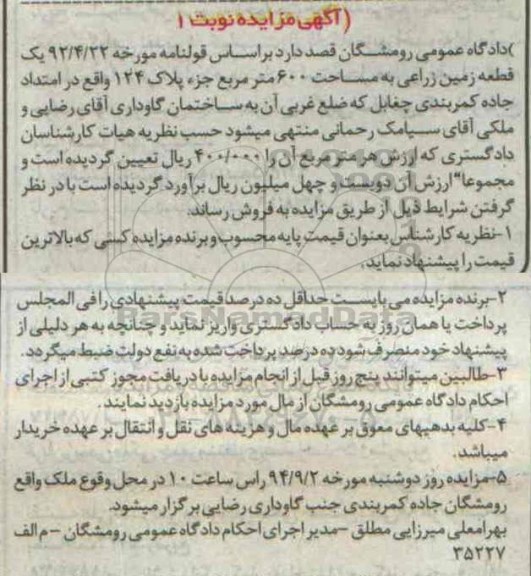 (آگهی مزایده نوبت ۱
)دادگاه عمومی رومشگان قصد دارد براساس قولنامه مورخه ۹۲/۴/۲۲ یک
قطعه زمین زراعی به مساحت ۶۰۰ متر مربع جزء پلاک ۱۲۴ واقع در امتداد
جاده کمربندی چغابل که ضلع غربی آن به ساختمان گاوداری آقای رضایی و
ملکی آقای سیامک رحمانی منتهی میشود حسب نظریه هیات کارشناسان
دادگستری که ارزش هر متر مربع آن را ۴۰۰/۰۰۰ ریال تعیین گردیده است و
مجموعا" ارزش آن دویست و چهل میلیون ریال برآورد گردیده است با در نظر
گرفتن شرایط ذیل از طریق مزایده به فروش رساند.
۱-نظریه کارشناس بعنوان قیمت پایه محسوب و برنده مزایده کسی که بالاترین
قیمت را پیشنهاد نماید.
۲-برنده مزایده می بایست حداقل ده درصد قیمت پیشنهادی را فی المجلس
پرداخت یا همان روز به حساب دادگستری واریز نماید و چنانچه به هر دلیلی از
پیشنهاد خود منصرف شود ده درصد پرداخت شده به نفع دولت ضبط میگردد.
۳-طالبین میتوانند پنج روز قبل از انجام مزایده با دریافت مجوز کتبی از اجرای
احکام دادگاه عمومی رومشگان از مال مورد مزایده بازدید نمایند.
۴-کلیه بدهیهای معوق بر عهده مال و هزینه های نقل و انتقال بر عهده خریدار
میباشد.
۵-مزایده روز دوشنبه مورخه ۹۴/۹/۲ راس ساعت ۱۰ در محل وقوع ملک واقع
رومشگان جاده کمربندی جنب گاوداری رضایی برگزار میشود.
بهرامعلی میرزایی مطلق -مدیر اجرای احکام دادگاه عمومی رومشگان - م الف
۳۵۲۲۷
ParsNamadData